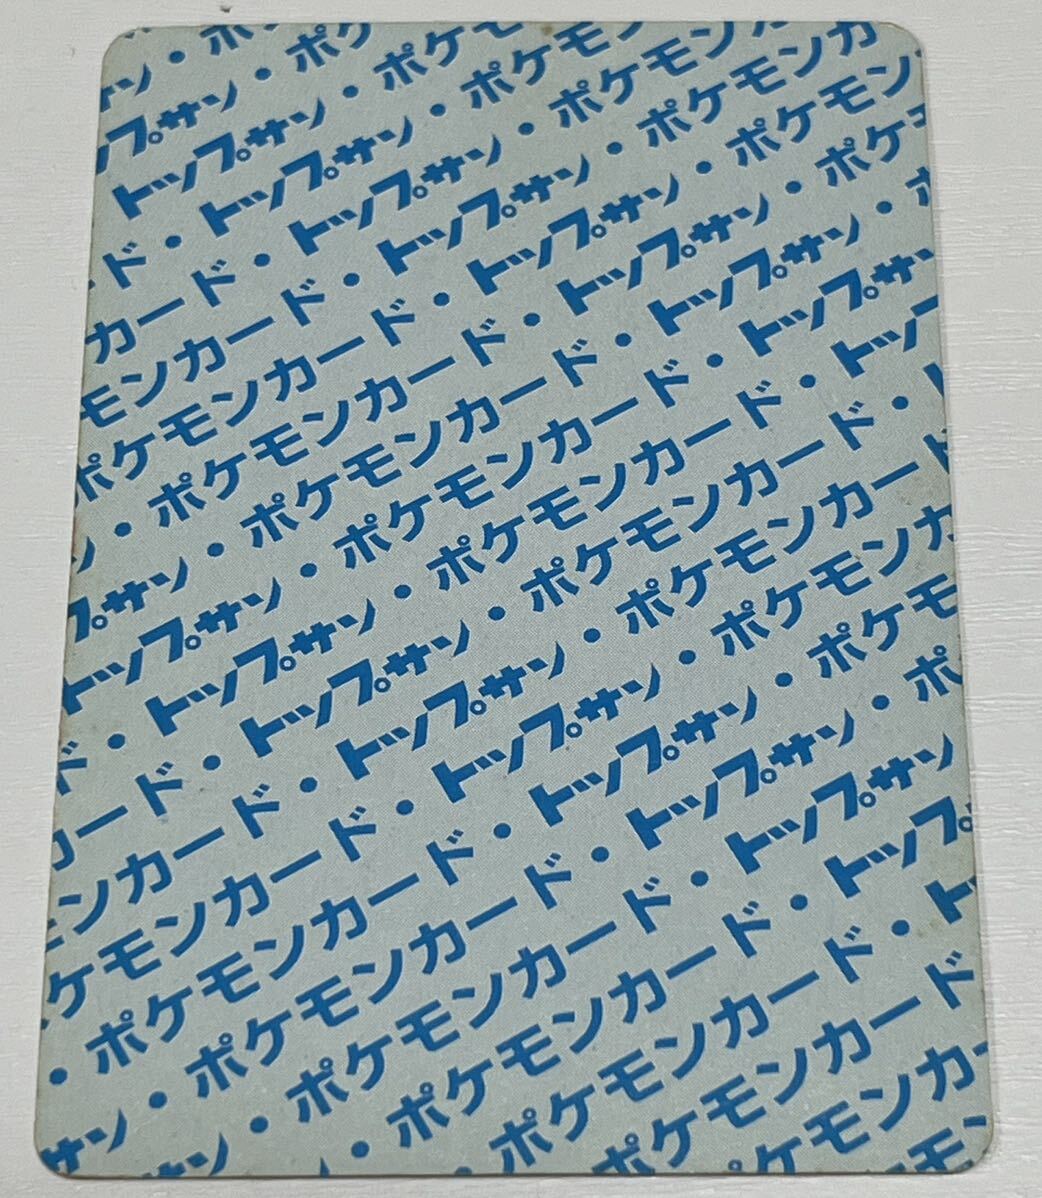 サン・ポ
ップサン・ポケ
トップサン・ポケモン
ド・トップサン・ポケモン
カード・トップサン・ポケモンカ
モンカード・トップサン・ポケモンカ
ポケモンカード・トップサン・ポケモン
ン・ポケモンカード・トップサン・ポケ
プサン・ポケモンカード・トップサン・ポ
トップサン・ポケモンカード・トップサン
ド・トップサン・ポケモンカード・トッ
カード・トップサン・ポケモンカード・
ンカード・トップサン・ポケモンカード
ケモンカード・トップサン・ポケモンカ
・ポケモンカード・トップサン・ポケモ
サン・ポケモンカード・トップサン・ポ
サン・ポケモンカード・トップサン
・ポケモンカード・トップ
ポケモンカード・ト
ポケモンカード
ポケモンカ
ポケモ